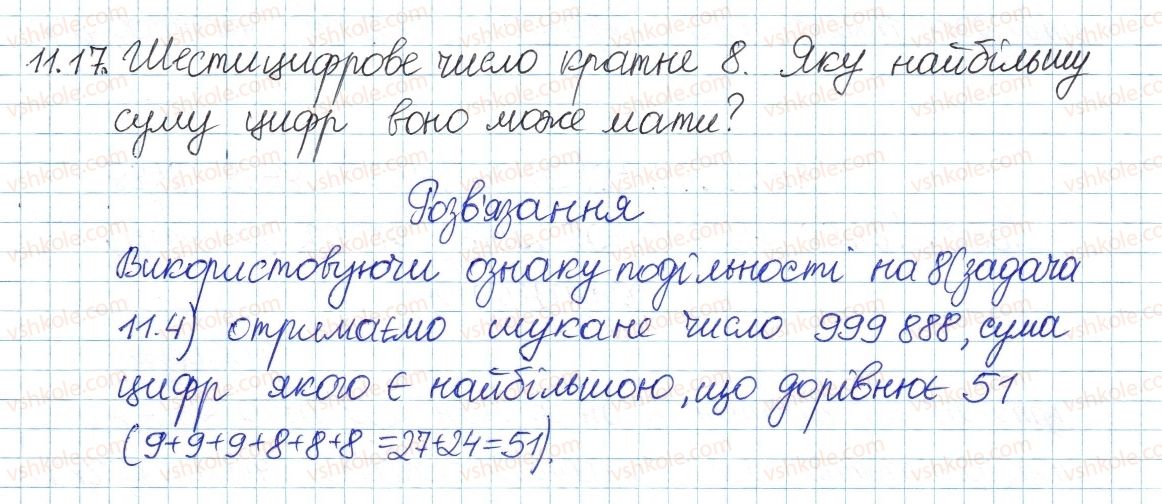 11.17. Шестицифрове число кратне 8. Яку найбільшу
суму цифр воно може мати?
Розв'язання
Використовуючи ознаку подільності на 8 (задача
11.4) отримаємо шукане число 999 888, сума
цифр якого є найбільшою, що дорівнює 51
(9+9+9+8+8+8=27+24=51).